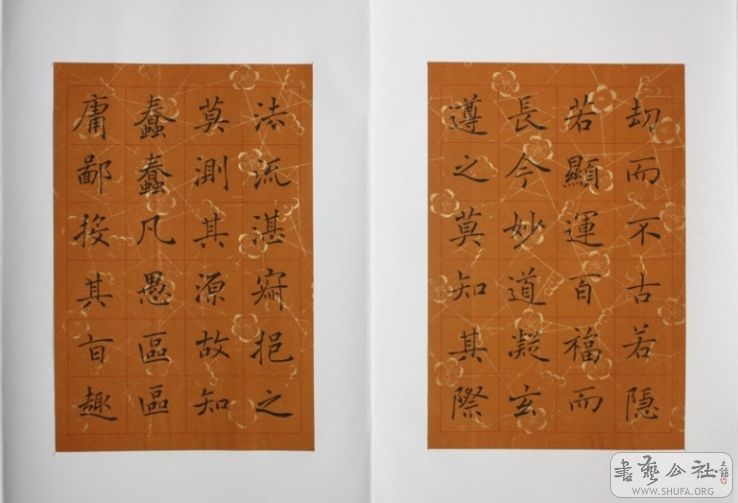 劫而不古若隱
若顯運百福而
長今妙道凝玄
遵之莫知其際
法流湛寂挹之
莫測其源故知
蠢蠢凡愚區區
庸鄙投其旨趣
書藝公社
WWW.SHUFA.ORG